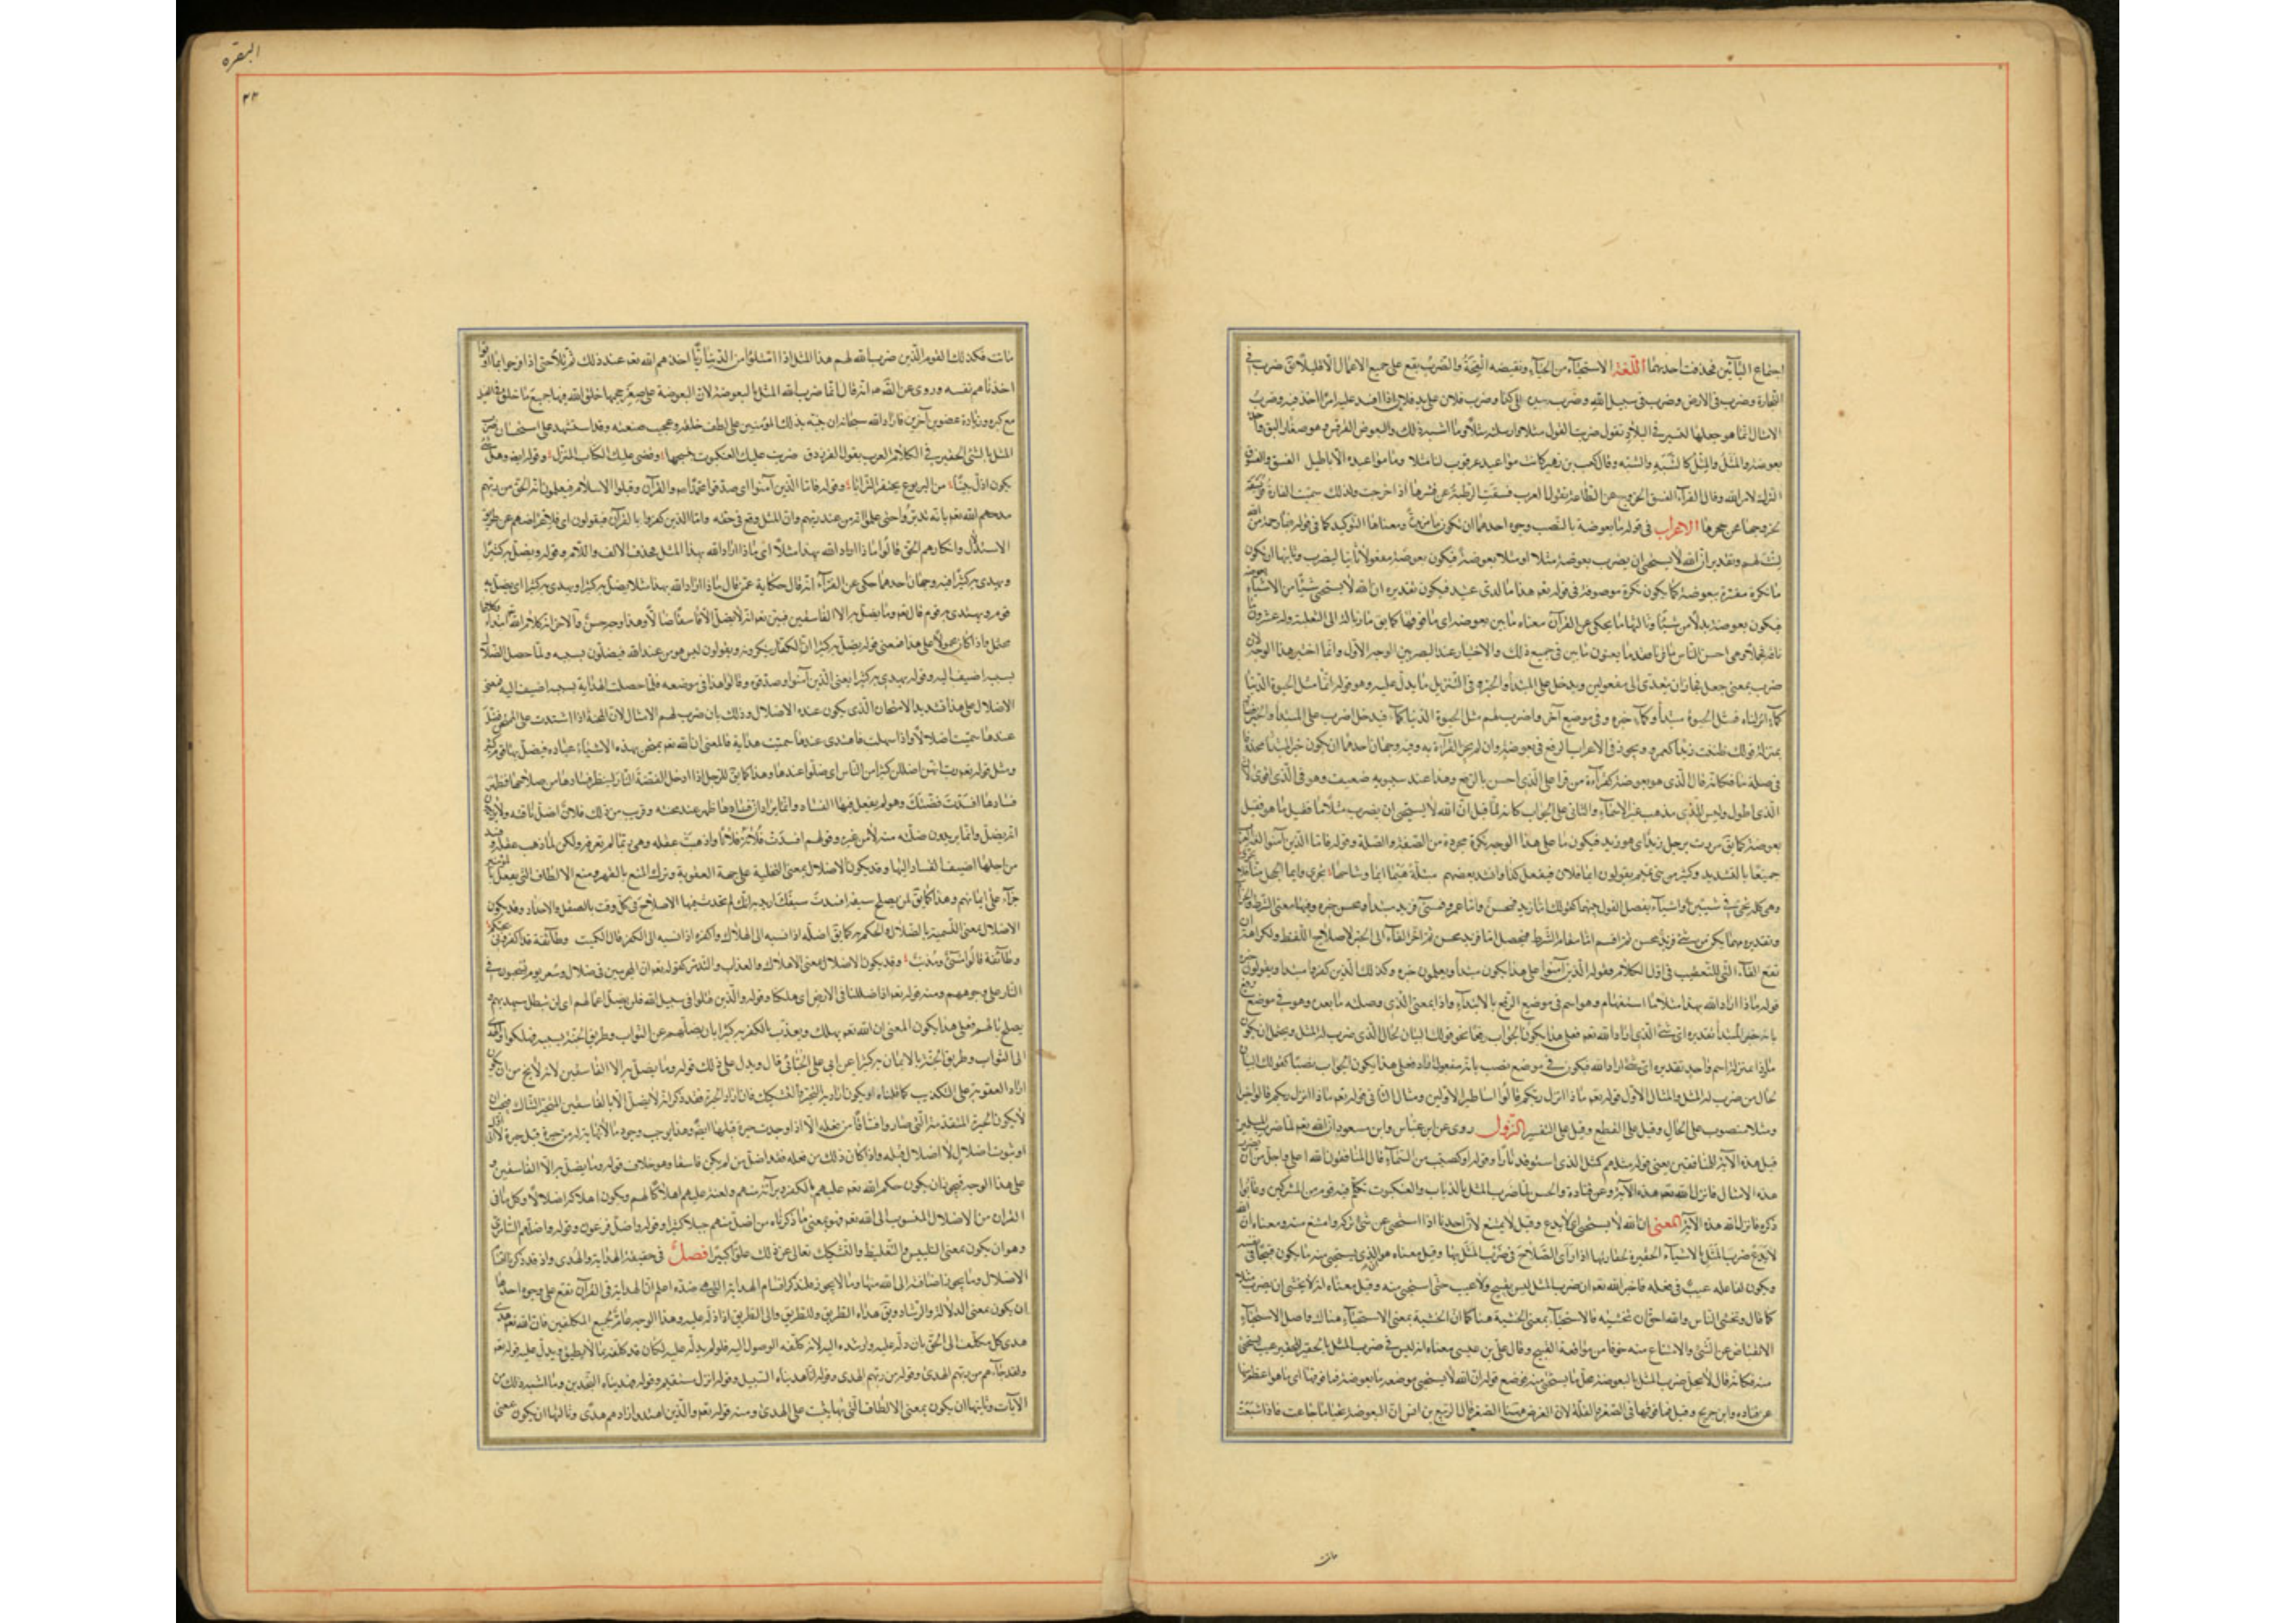 البقره
٢٣
اجتماع اليائين فحذفت احديهما اللغة الاستحياء من الحياء ونقيضه القحة والضرب يقع على جميع الاعمال الا قليلا يق ضرب في
التجارة وضرب في الارض وضرب في سبيل الله وضرب بيده الى كذا وضرب فلان على يد فلان اذا افسد عليه امرا اخذ فيه وضرب
الامثال انما هو جعلها لتسير في البلاد تقول ضربت القول مثلا وارسلته مثلا وما اشبه ذلك والبعوض القرقس وهو صغار البق واحدة
بعوضة والمثل والمثل كالشبه والشبه وقال كعب بن زهير كانت مواعيد عرقوب لنا مثلا وما مواعيده الا الاباطيل الفسق والفسوق
الترك لامر الله وقال الفراء الفسق الخروج عن الطاعة تقول العرب فسقت الرطبة عن قشرها اذا خرجت ولذلك سميت الفارة فويسقة
لخروجها عن جحرها الاعراب في قوله ما بعوضة بالنصب وجوه احدها ان تكون ما مزيدة ومعناها التوكيد كما في قوله فبما رحمة من الله
لنت لهم وتقديره ان الله لا يستحي ان يضرب بعوضة مثلا او مثلا بعوضة فيكون بعوضة مفعولا ثانيا ليضرب وثانيها ان تكون
ما نكرة مفسرة ببعوضة كما يكون نكرة موصوفة في قوله تعم هذا ما لدي عتيد فيكون تقديره ان الله لا يستحي شيئا من الاشياء
فيكون بعوضة بدلا من شيئا وثالثها ما يحكى عن الفراء معناه ما بين بعوضة الى ما فوقها كما يق مطرنا ما زبالة الى الثعلبية وله عشرون
ضرب بمعنى جعل فجاز ان يتعدى الى مفعولين ويدخل على المبتدأ والخبر وفي التنزيل ما يدل عليه وهو قوله انما مثل الحيوة الدنيا
كماء انزلناه فمثل الحيوة مبتدأ وكماء خبره وفي موضع آخر واضرب لهم مثل الحيوة الدنيا كماء فدخل اضرب على المبتدأ والخبر
بمنزلة قولك ظننت زيدا كعمرو ويجوز في الاعراب الرفع في بعوضة وان لم يجز القراءة به وفيه وجهان احدهما ان يكون خبرا لمبتدأ محذوف
في صلة ما فكانه قال الذي هو بعوضة كقراءة من قرأ على الذي احسن بالرفع وهذا عند سيبويه ضعيف وهو في الذي اقوى لان
الذي اطول وليس للذي مذهب غير الاسماء والثاني على الجواب كانه لما قيل ان الله لا يستحي ان يضرب مثلا ما فقيل ما هو فقيل
بعوضة كما يق مررت برجل زيد اي هو زيد فيكون ما على هذا الوجه نكرة مجردة من الصفة والصلة وقوله فاما الذين آمنوا
جميعا بالتشديد وكثير من بني تميم يقولون ايما فلان فيفعل كذا وانشد بعضهم مبتلة هيفاء ايما وشاحها فيجري وايما الحجل منها فلا
وهي كلمة تجيء في شيئين او اشياء يفصل القول بينهما كقولك اما زيد فمحسن واما عمرو فمسيء فزيد مبتدأ ومحسن خبره وفيها معنى الشرط والجزاء
وتقديره مهما يكن من شيء فزيد محسن ثم اقيم اما مقام الشرط فيحصل اما فزيد محسن ثم اخر الفاء الى الخبر لاصلاح اللفظ ولكراهة ان
تقع الفاء التي للتعقيب في اول الكلام وقوله الذين آمنوا على هذا يكون مبتدأ ويعلمون خبره وكذلك الذين كفروا مبتدأ ويقولون خبره
قوله ماذا اراد الله بهذا مثلا ما استفهام وهو اسم في موضع الرفع بالابتداء وذا بمعنى الذي وصلته ما بعده وهو في موضع رفع
بانه خبر المبتدأ تقديره اي شيء الذي اراد الله تعم فعلى هذا يكون الجواب رفعا نحو قولك البيان لحال الذي ضرب له المثل ويحتمل ان يكون
ماذا بمنزلة اسم واحد تقديره اي شيء اراد الله فيكون في موضع نصب بانه مفعول اراد فعلى هذا يكون الجواب نصبا كقولك البيان
لحال من ضرب له المثل والمثال الاول قوله تعم ماذا انزل ربكم قالوا اساطير الاولين ومثال الثاني قوله تعم ماذا انزل ربكم قالوا خيرا
ومثلا منصوب على الحال وقيل على القطع وقيل على التفسير النزول روى عن ابن عباس وابن مسعود ان الله تعم لما ضرب المثلين
قبل هذه الآية للمنافقين يعني قوله مثلهم كمثل الذي استوقد نارا وقوله او كصيب من السماء قال المنافقون الله اعلى واجل من ان يضرب
هذه الامثال فانزل الله تعم هذه الآية وعن قتادة والحسن لما ضرب المثل بالذباب والعنكبوت تكلم فيه قوم من المشركين وعابوا
ذكره فانزل الله هذه الآية المعنى ان الله لا يستحي اي لا يدع وقيل لا يمتنع لان احدنا اذا استحى عن شيء تركه وامتنع منه ومعناه ان الله
لا يدع ضرب المثل بالاشياء الحقيرة لحقارتها اذا رأى الصلاح في ضرب المثل بها وقيل معناه هو الذي يستحى منه ما يكون قبيحا في نفسه
ويكون لفاعله عيب في فعله فاخبر الله تعم ان ضرب المثل ليس بقبيح ولا عيب حتى استحي منه وقيل معناه انه لا يخشى ان يضرب مثلا
كما قال وتخشى الناس والله احق ان تخشيه فالاستحياء بمعنى الخشية هنا كما ان الخشية بمعنى الاستحياء هناك واصل الاستحياء
الانقباض عن الشيء والامتناع منه خوفا من مواقعة القبيح وقال علي بن عيسى معناه انه ليس في ضرب المثل بالحقير للحقير عيب يستحى
منه فكانه قال لا يحل ضرب المثل بالبعوضة محل ما يستحى منه فوضع قوله ان الله لا يستحي موضعه ما بعوضة فما فوقها اي ما هو اعظم منها
عن قتادة وابن جريج وقيل فما فوقها في الصغر والقلة لان الغرض ههنا الصغر قال الربيع بن انس ان البعوضة تحيا ما جاعت فاذا شبعت
ماتت
ماتت فكذلك القوم الذين ضرب الله لهم هذا المثل اذا امتلؤا من الدنيا ريا اخذهم الله تعم عند ذلك ثم تلا حتى اذا فرحوا بما اوتوا
اخذناهم بغتة وروى عن الصادق ع انه قال انما ضرب الله المثل بالبعوضة لان البعوضة على صغر حجمها خلق الله فيها جميع ما خلق في الفيل
مع كبره وزيادة عضوين آخرين فاراد الله سبحانه ان ينبه بذلك المؤمنين على لطف خلقه وعجيب صنعته وقد استشهد على استحسان ضرب
المثل بالشيء الحقير في الكلام العرب بقول الفرزدق ضربت عليك العنكبوت بنسجها وقضى عليك الكتاب المنزل وقوله ايضا وهل شيء
يكون اذل بيتا من اليربوع يحتفر الترابا وقوله فاما الذين آمنوا اي صدقوا محمدا ص والقرآن وقبلوا الاسلام فيعلمون انه الحق من ربهم
مدحهم الله تعم بانهم تدبروا حتى علموا انه من عند ربهم وان المثل وقع في حقه واما الذين كفروا بالقرآن فيقولون اي فلاعراضهم عن طريق
الاستدلال وانكارهم الحق قالوا ماذا اراد الله بهذا مثلا اي ماذا اراد الله بهذا المثل فحذف الالف واللام وقوله يضل به كثيرا
ويهدي به كثيرا فيه وجهان احدهما حكى عن الفراء انه قال حكاية عمن قال ماذا اراد الله بهذا مثلا يضل به كثيرا ويهدي به كثيرا اي يضل به
قوم ويهتدي به قوم قال تعم وما يضل به الا الفاسقين فبين تعم انه لا يضل الا فاسقا ضالا وهذا وجه حسن والآخر انه كلام الله ابتداء وكلاهما
محتمل واذا كان محمولا على هذا فمعنى قوله يضل به كثيرا ان الكفار ينكرونه ويقولون ليس هو من عند الله فيضلون بسببه ولما حصل الضلال
بسببه اضيف اليه وقوله يهدي به كثيرا يعني الذين آمنوا وصدقوه وقالوا هذا في موضعه فلما حصلت الهداية بسببه اضيف اليه فمعنى
الاضلال على هذا تشديد الامتحان الذي يكون عنده الاضلال وذلك بان ضرب لهم الامثال لان المحنة اذا اشتدت على الممتحن فضل
عندها سميت اضلالا واذا سهلت فاهتدى عندها سميت هداية فالمعنى ان الله تعم يمتحن بهذه الاشياء عباده فيضل بها قوم كثير
ومثله قوله تعم رب انهن اضللن كثيرا من الناس اي ضلوا عندها وهذا كما يق للرجل اذا ادخل الفضة النار لينظر فسادها من صلاحها فظهر
فسادها افسدت فضتك وهو لم يفعل فيها الفساد وانما يراد ان فسادها ظهر عند محنته وقريب من ذلك فلان اضل ناقته ولا يريدون
انه يضل وانما يريدون ضلت منه لا من غيره وقولهم افسدت فلانة فلانا واذهبت عقله وهي ربما لم تعرفه ولكن لما ذهب عقله وفسد
من اجلها اضيف الفساد اليها وقد يكون الاضلال بمعنى التخلية على جهة العقوبة وترك المنع بالقهر ومنع الالطاف التي يفعل بالمؤمنين
جزاء على ايمانهم وهذا كما يق لمن لا يصلح سيفه افسدت سيفك اريد به انك لم تحدث فيها الاصلاح في كل وقت بالصقل والاحداد وقد يكون
الاضلال بمعنى التسمية بالضلال والحكم به كما يق اضله اذا نسبه الى الضلال واكفره اذا نسبه الى الكفر قال الكميت وطائفة قد اكفروني بحبكم
وطائفة قالوا مسيء ومذنب وقد يكون الاضلال بمعنى الاهلاك والعذاب والتدمير كقوله تعم ان المجرمين في ضلال وسعر يوم يسحبون في
النار على وجوههم ومنه قوله تعم ااذا ضللنا في الارض اي هلكنا وقوله والذين قتلوا في سبيل الله فلن يضل اعمالهم اي لن يبطل سيهديهم و
يصلح بالهم فعلى هذا يكون المعنى ان الله تعم يهلك ويعذب بالكفر به كثيرا بان يضلهم عن الثواب وطريق الجنة بسببه فيهلكوا ويهدي
الى الثواب وطريق الجنة بالايمان به كثيرا عن ابي علي الجبائي قال ويدل على ذلك قوله وما يضل به الا الفاسقين لانه لا يخ من ان يكون
اراد العقوبة على التكذيب كما قلناه او يكون اراد به التحيير والتشكيك فان اراد الحيرة فقد ذكر انه لا يضل الا الفاسقين المتحيرين الشاك فيجب ان
لا يكون الحيرة المتقدمة التي بها صاروا فساقا من فعله الا اذا وجدت حيرة قبلها ايضا وهذا يوجب وجود ما لا نهاية له من حيرة قبل حيرة لا الى اول
او ثبوت اضلال لا اضلال قبله واذا كان ذلك من فعله فقد اضل من لم يكن فاسقا وهو خلاف قوله وما يضل به الا الفاسقين و
على هذا الوجه فيجوز ان يكون حكم الله تعم عليهم بالكفر وبرائته منهم ولعنته عليهم اهلاكا لهم ويكون اهلاكه اضلالا وكل ما في
القران من الاضلال المنسوب الى الله تعم فهو بمعنى ما ذكرناه من اضل منهم جبلا كثيرا وقوله واضل فرعون وقوله واضلهم السامري
وهو ان يكون بمعنى التلبيس والتغليظ والتشكيك تعالى عن ذلك علوا كبيرا فصل في حقيقة الهداية والهدى واذ قد ذكرنا
الاضلال وما يجوز اضافته الى الله منها وما لا يجوز فلنذكر اقسام الهداية التي هي ضده اعلم ان الهداية في القرآن تقع على وجوه احدها
ان يكون بمعنى الدلالة والارشاد ويق هداه الطريق وللطريق والى الطريق اذا دله عليه وهذا الوجه عام لجميع المكلفين فان الله تعم هدى
كل مكلف الى الحق بان دله عليه وارشده اليه لانه كلفه الوصول اليه فلو لم يدله عليه لكان قد كلفه بما لا يطيق ويدل عليه قوله تعم
ولقد جاءهم من ربهم الهدى وقوله من ربهم الهدى وقوله انا هديناه السبيل وقوله انزل فيه وقوله هديناه النجدين وما اشبه ذلك من
الآيات وثانيها ان يكون بمعنى الالطاف التي بها يثبت على الهدى ومنه قوله تعم والذين اهتدوا زادهم هدى وثالثها ان يكون بمعنى